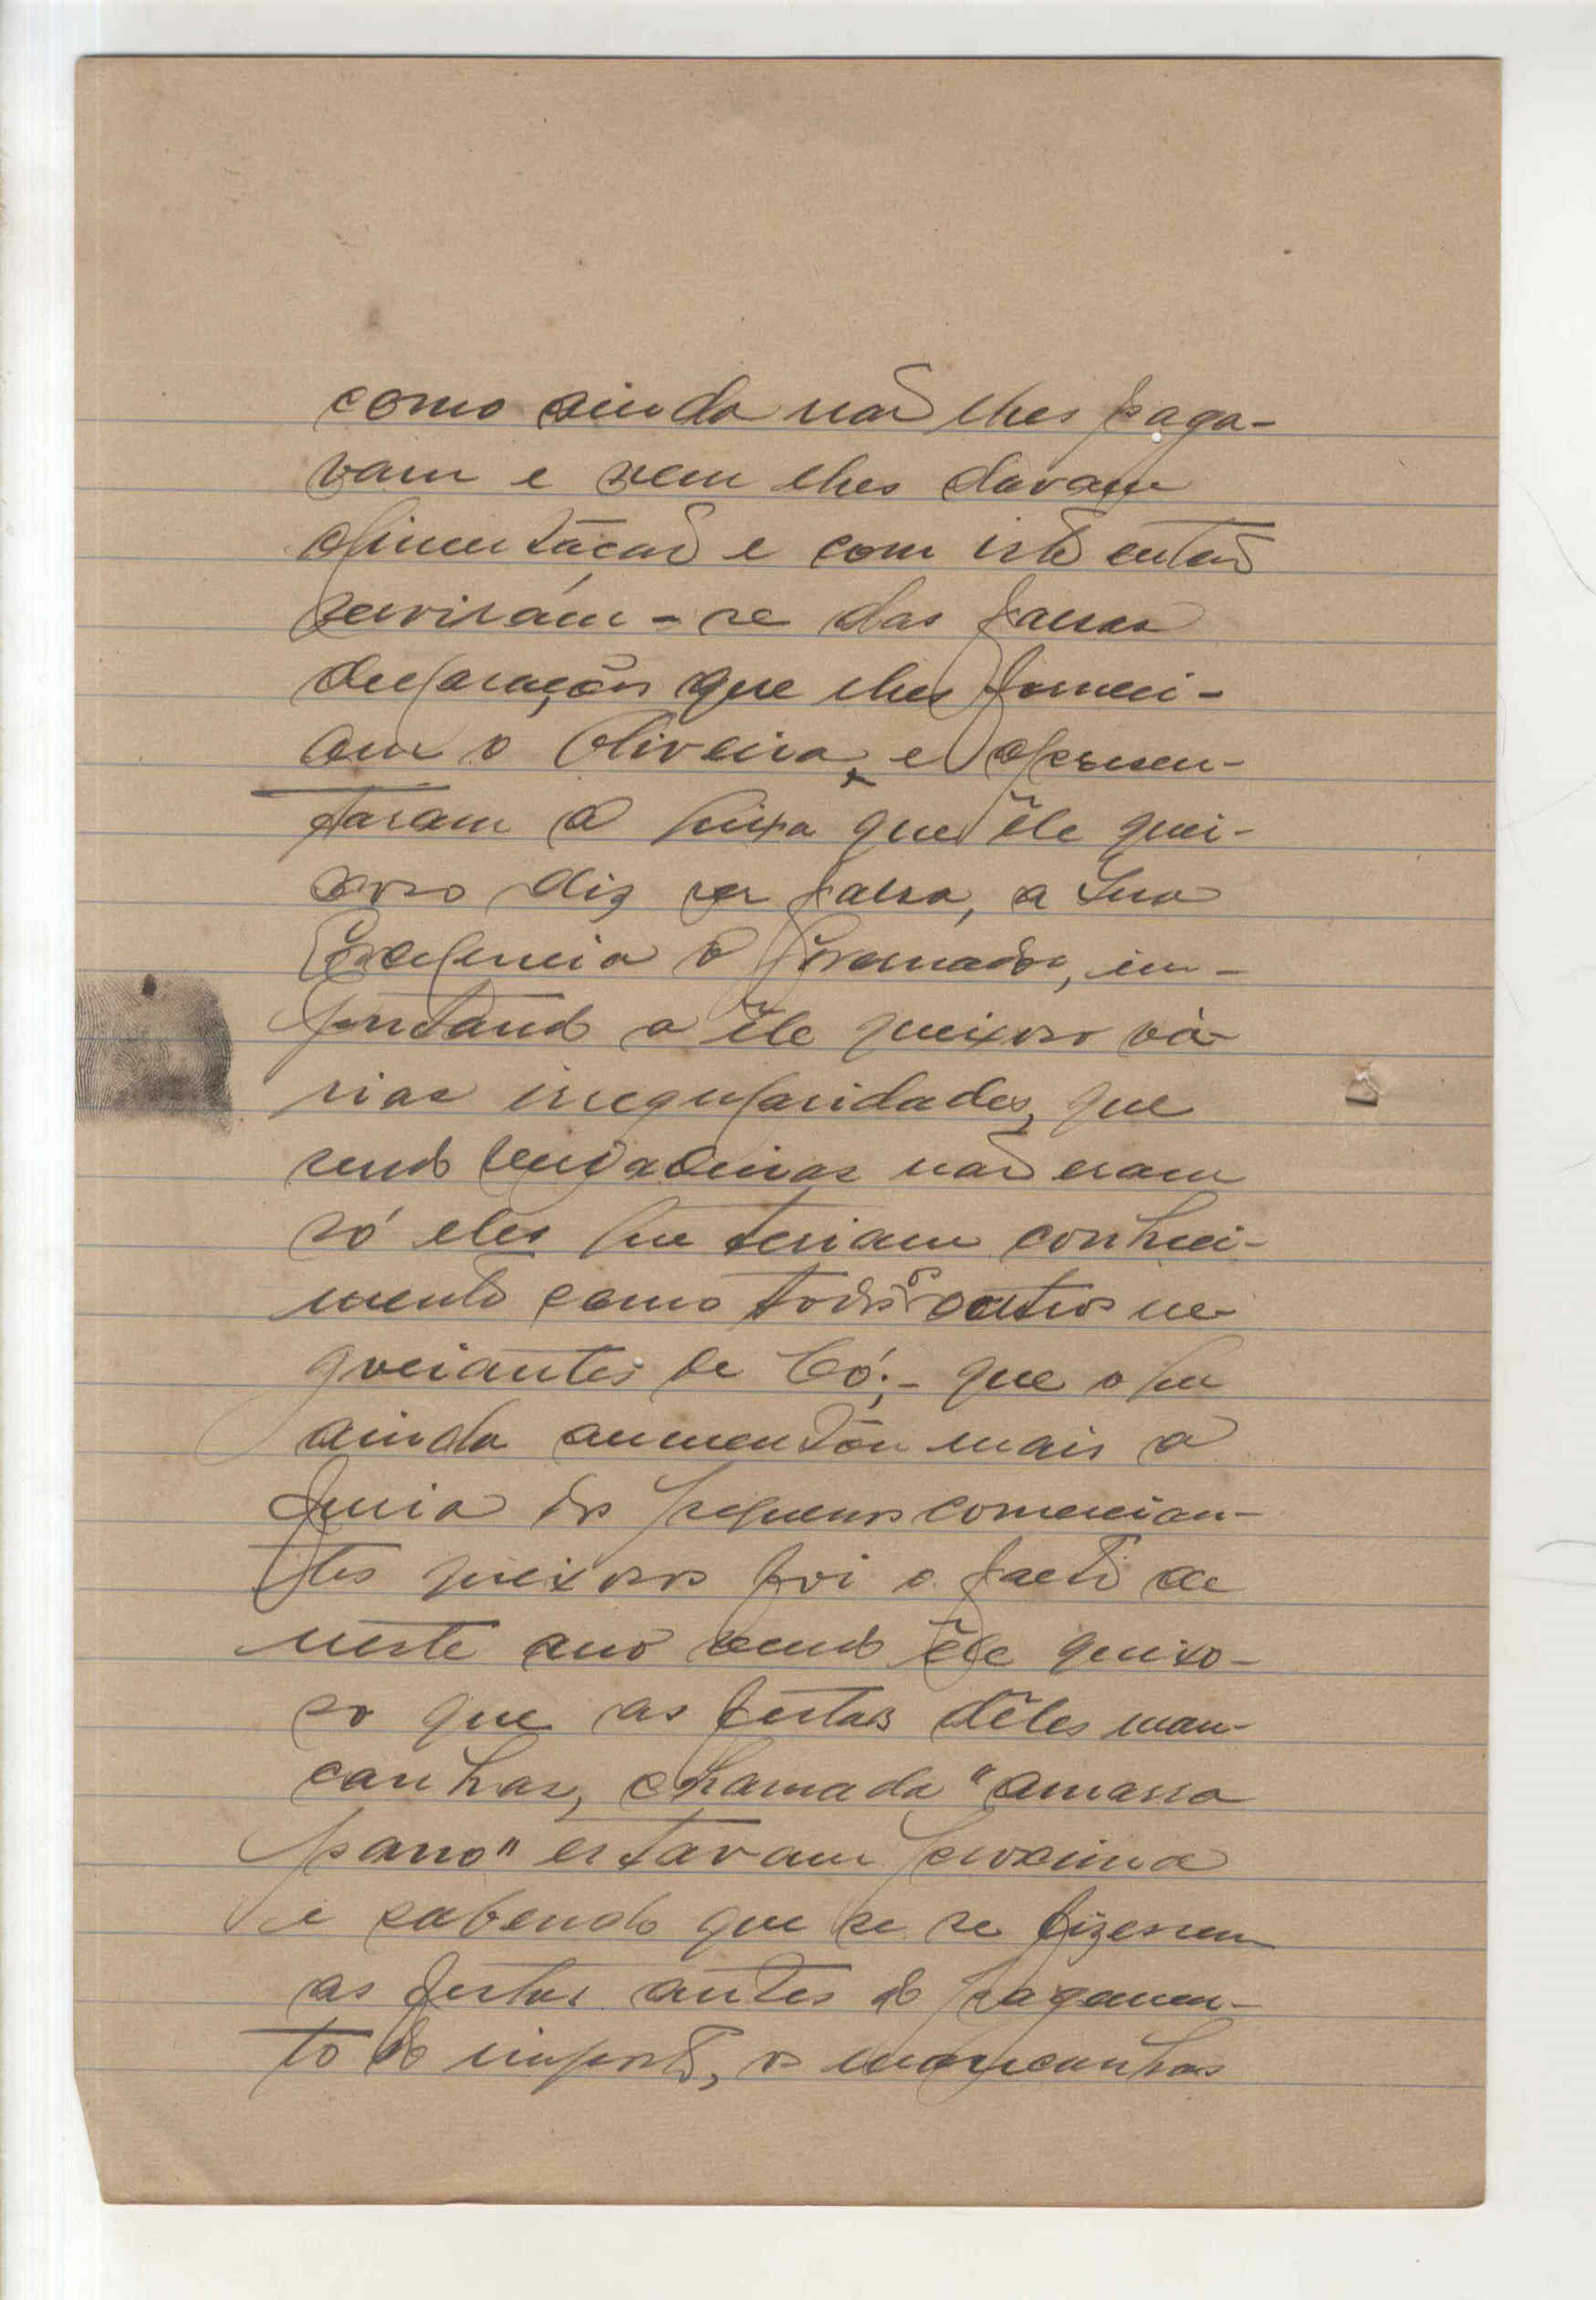 como ainda não lhes paga-
vam e nem lhes davam
alimentação e com isto então
servirám-se das falsas
declarações que lhes forneci-
am o Oliveira, e apresen-
taram a queixa que êle quei-
xoso diz ser falsa, a Sua
Excelencia o Governador, im-
putando a êle queixoso vá-
rias irregularidades, que
sendo verdadeiras não eram
só eles que teriam conheci-
mento como todos os outros ne-
gociantes de Có;- que o que
ainda aumentou mais a
furia dos pequenos comercian-
tes queixosos foi o facto de
neste ano vendo êle queixo-
so que as festas dêles man-
canhas, chamada "amassa
pano" estavam proxima
e sabendo que se se fizessem
as festas antes do pagamen-
to do imposto, os mancanhas